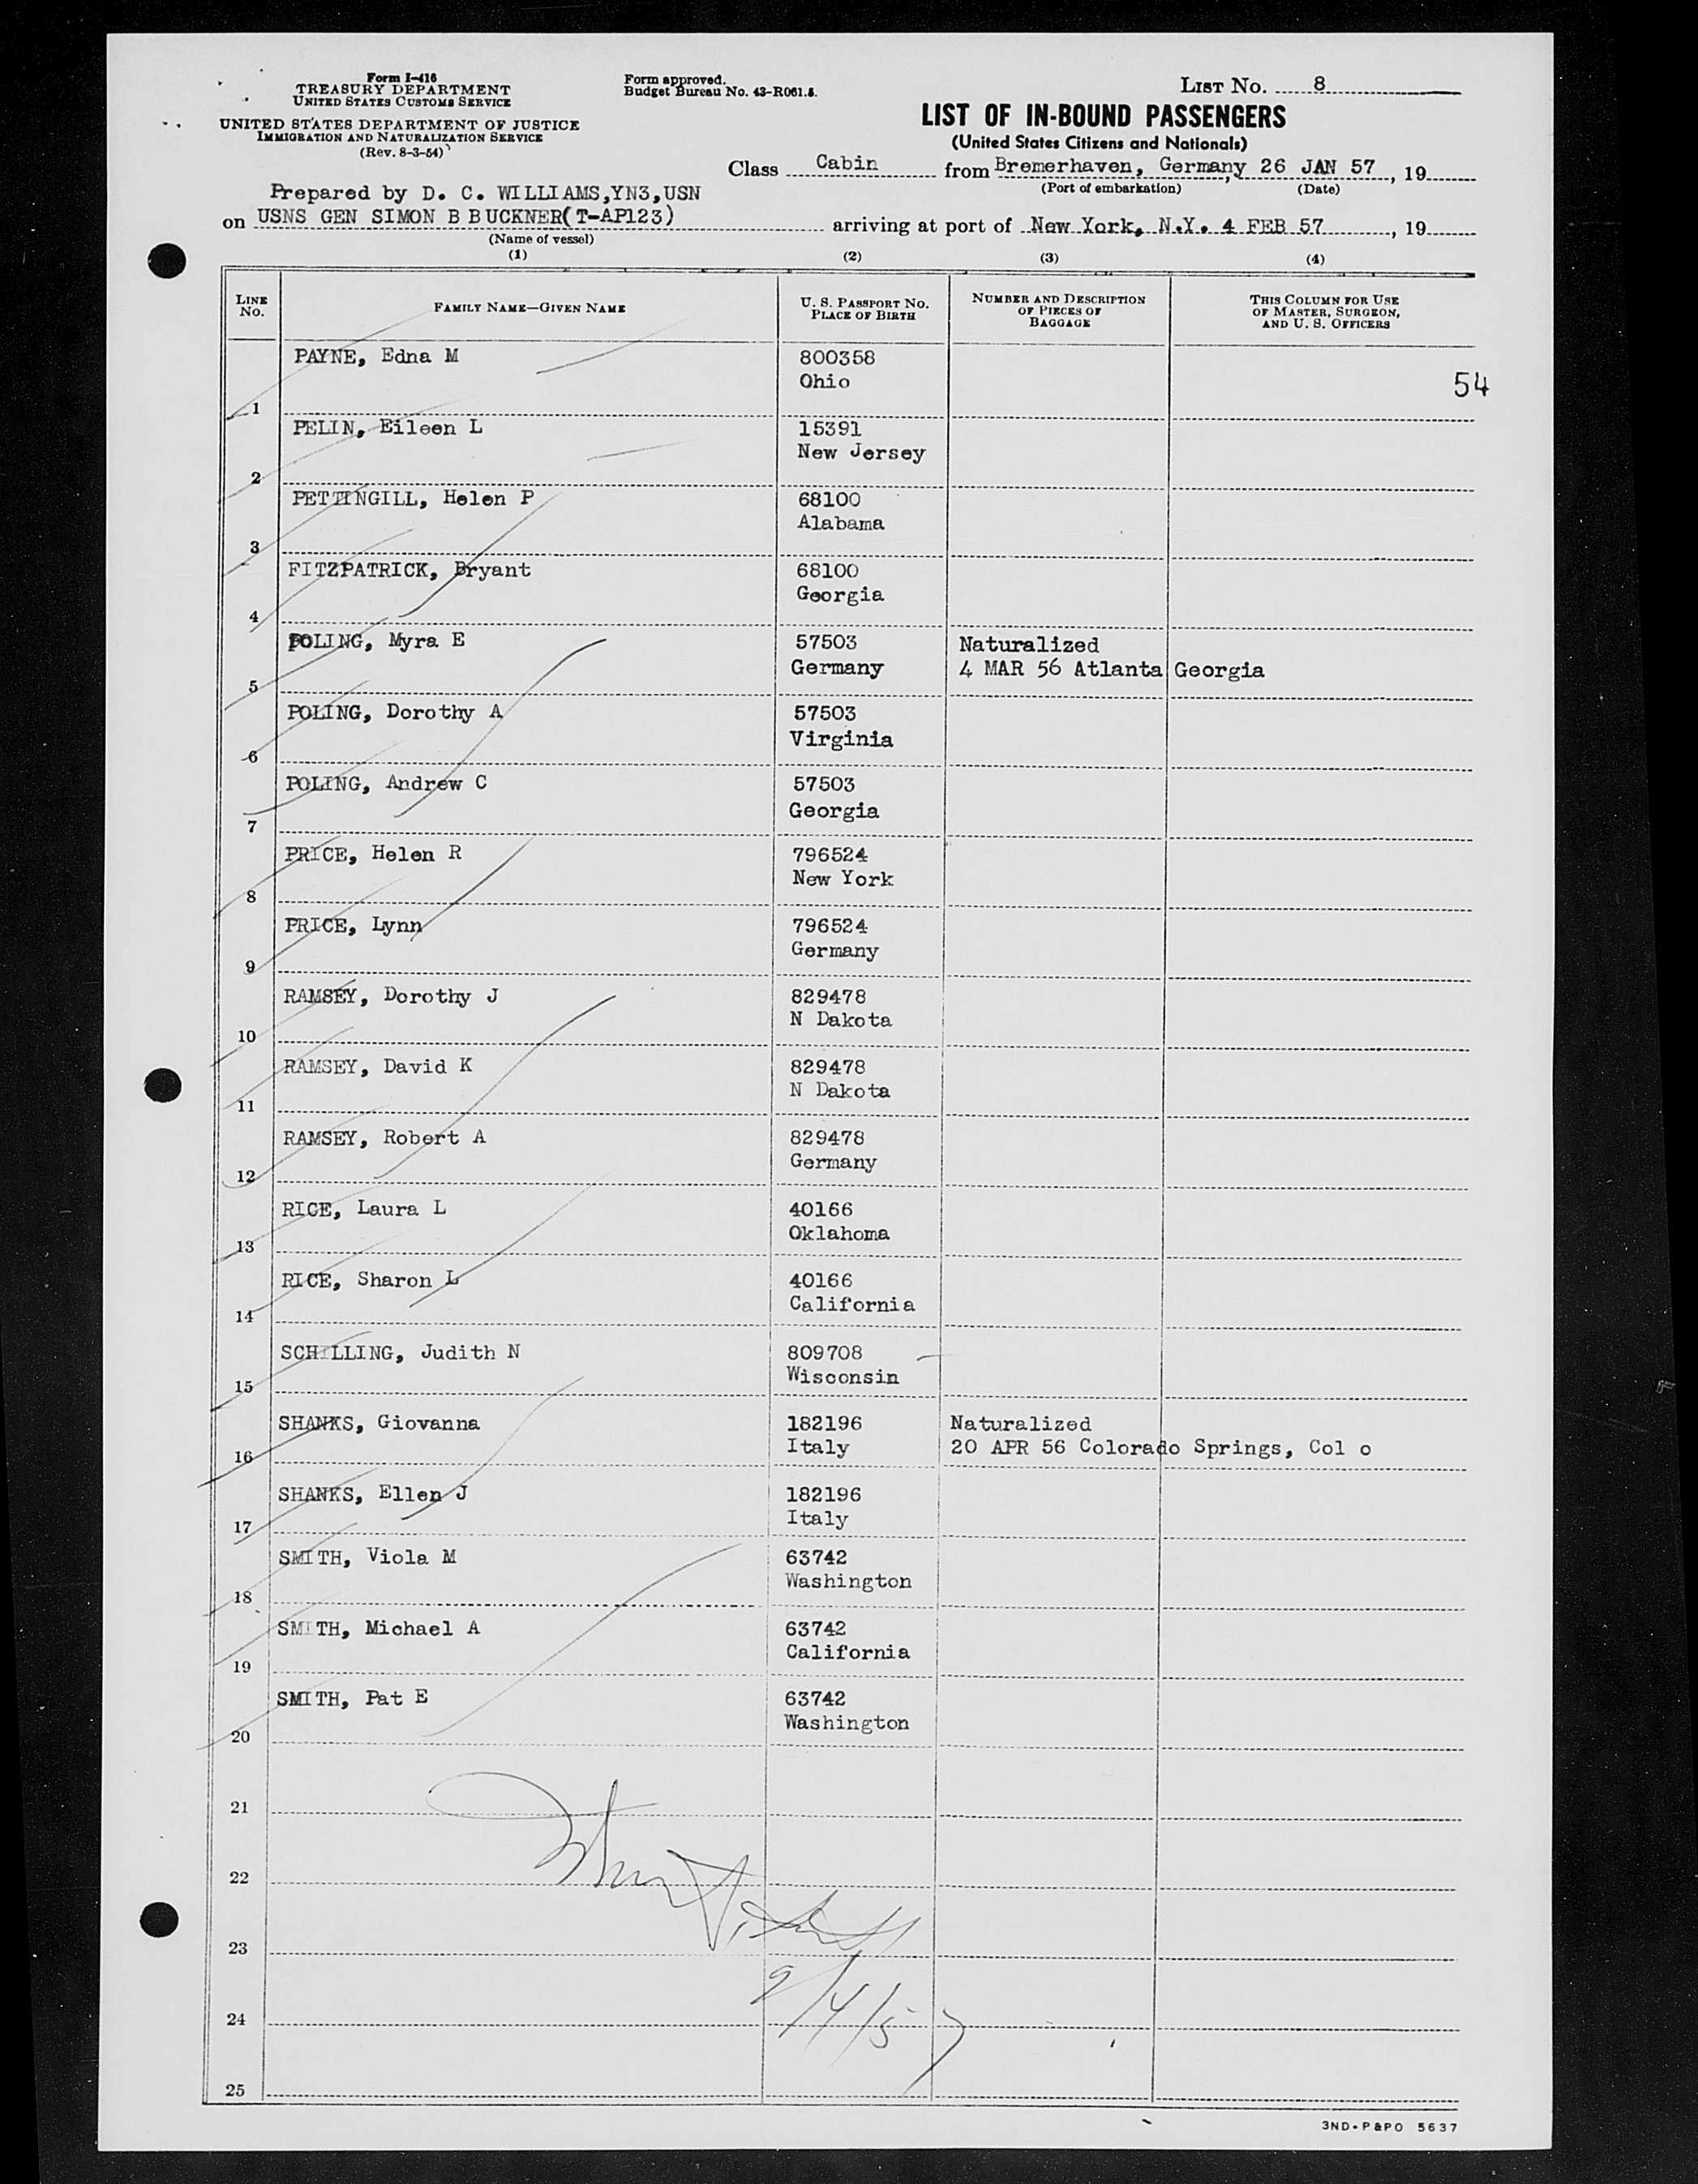 Form I-416
TREASURY DEPARTMENT
UNITED STATES CUSTOMS SERVICE
UNITED STATES DEPARTMENT OF JUSTICE
IMMIGRATION AND NATURALIZATION SERVICE
(Rev. 8-3-54)
Form approved.
Budget Bureau No. 43-R061.5.
LIST No. 8
LIST OF IN-BOUND PASSENGERS
(United States Citizens and Nationals)
Class Cabin from Bremerhaven, Germany 26 JAN 57, 19
(Port of embarkation) (Date)
Prepared by D. C. WILLIAMS,YN3,USN
on USNS GEN SIMON B BUCKNER(T-AP123) arriving at port of New York, N.Y. 4 FEB 57, 19
(Name of vessel)
(1) (2) (3) (4)
LINE No. FAMILY NAME—GIVEN NAME U. S. PASSPORT No. PLACE OF BIRTH NUMBER AND DESCRIPTION OF PIECES OF BAGGAGE THIS COLUMN FOR USE OF MASTER, SURGEON, AND U. S. OFFICERS
PAYNE, Edna M 800358
Ohio
54
1
PELIN, Eileen L 15391
New Jersey
2
PETTINGILL, Helen P 68100
Alabama
3
FITZPATRICK, Bryant 68100
Georgia
4
POLING, Myra E 57503 Naturalized
Germany 4 MAR 56 Atlanta Georgia
5
POLING, Dorothy A 57503
Virginia
6
POLING, Andrew C 57503
Georgia
7
PRICE, Helen R 796524
New York
8
PRICE, Lynn 796524
Germany
9
RAMSEY, Dorothy J 829478
N Dakota
10
RAMSEY, David K 829478
N Dakota
11
RAMSEY, Robert A 829478
Germany
12
RICE, Laura L 40166
Oklahoma
13
RICE, Sharon L 40166
California
14
SCHILLING, Judith N 809708
Wisconsin
15
SHANKS, Giovanna 182196 Naturalized
Italy 20 APR 56 Colorado Springs, Col o
16
SHANKS, Ellen J 182196
Italy
17
SMITH, Viola M 63742
Washington
18
SMITH, Michael A 63742
California
19
SMITH, Pat E 63742
Washington
20
21
22
23
2/4/57
24
25
3ND-P&PO 5637